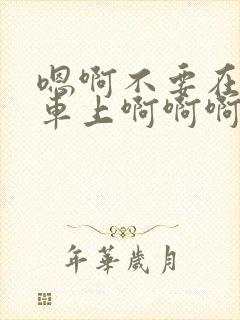 嗯啊不要在
車上啊啊啊
年華歲月